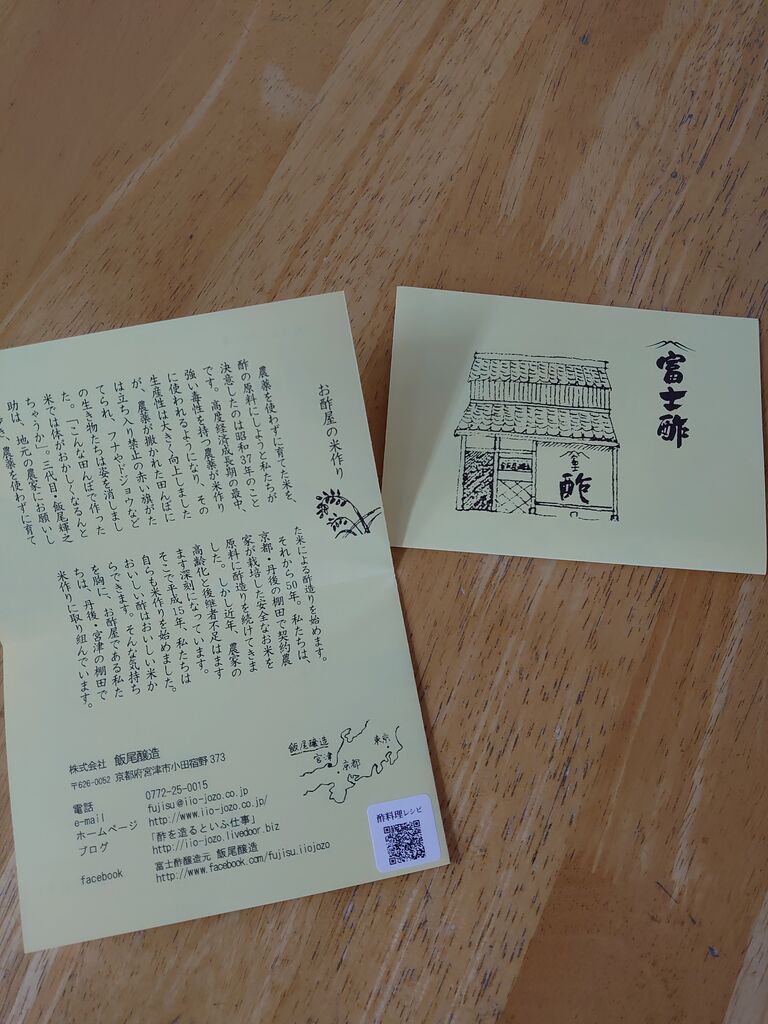 お酢屋の米作り
農薬を使わずに育てた米を、
酢の原料にしようと私たちが
決意したのは昭和37年のこと
です。高度経済成長期の最中、
強い毒性を持つ農薬が米作り
に使われるようになり、その
生産性は大きく向上しました
が、農薬が撒かれた田んぼに
は立ち入り禁止の赤い旗がた
てられ、フナやドジョウなど
の生き物たちは姿を消しまし
た。「こんな田んぼで作った
米では体がおかしくなるんと
ちゃうか」。三代目・飯尾輝之
助は、地元の農家にお願いし
農薬を使わずに育て
た米による酢造りを始めます。
それから50年。私たちは、
京都・丹後の棚田で契約農
家が栽培した安全なお米を
原料に酢造りを続けてきま
した。しかし近年、農家の
高齢化と後継者不足はます
ます深刻になっています。
そこで平成15年、私たちは
自らも米作りを始めました。
おいしい酢はおいしい米か
らできます。そんな気持ち
を胸に、お酢屋である私た
ちは、丹後・宮津の棚田で
米作りに取り組んでいます。
株式会社 飯尾醸造
〒626-0052 京都府宮津市小田宿野373
電話 0772-25-0015
e-mail fujisu@iio-jozo.co.jp
ホームページ http://www.iio-jozo.co.jp/
ブログ 「酢を造るといふ仕事」
http://iio-jozo.livedoor.biz
facebook 富士酢醸造元 飯尾醸造
http://www.facebook.com/fujisu.iiojozo
飯尾醸造
宮津
京都
東京
酢料理レシピ
富士酢
酢